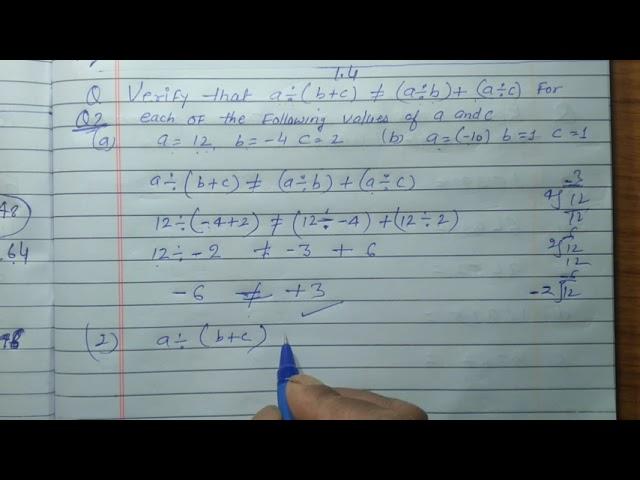 1.4
Q Verify that a÷(b+c) ≠ (a÷b)+(a÷c) For
Q2 each of the Following values of a and c
(a) a=12, b=-4 c=2 (b) a=(-10) b=1 c=1
a÷(b+c) ≠ (a÷b)+(a÷c)
12÷(-4+2) ≠ (12÷-4)+(12÷2)
12÷-2 ≠ -3 + 6
-6 ≠ +3 ✓
(2) a÷(b+c)
-3
4)12
12
6
2)12
12
-6
-2)12
48
.64